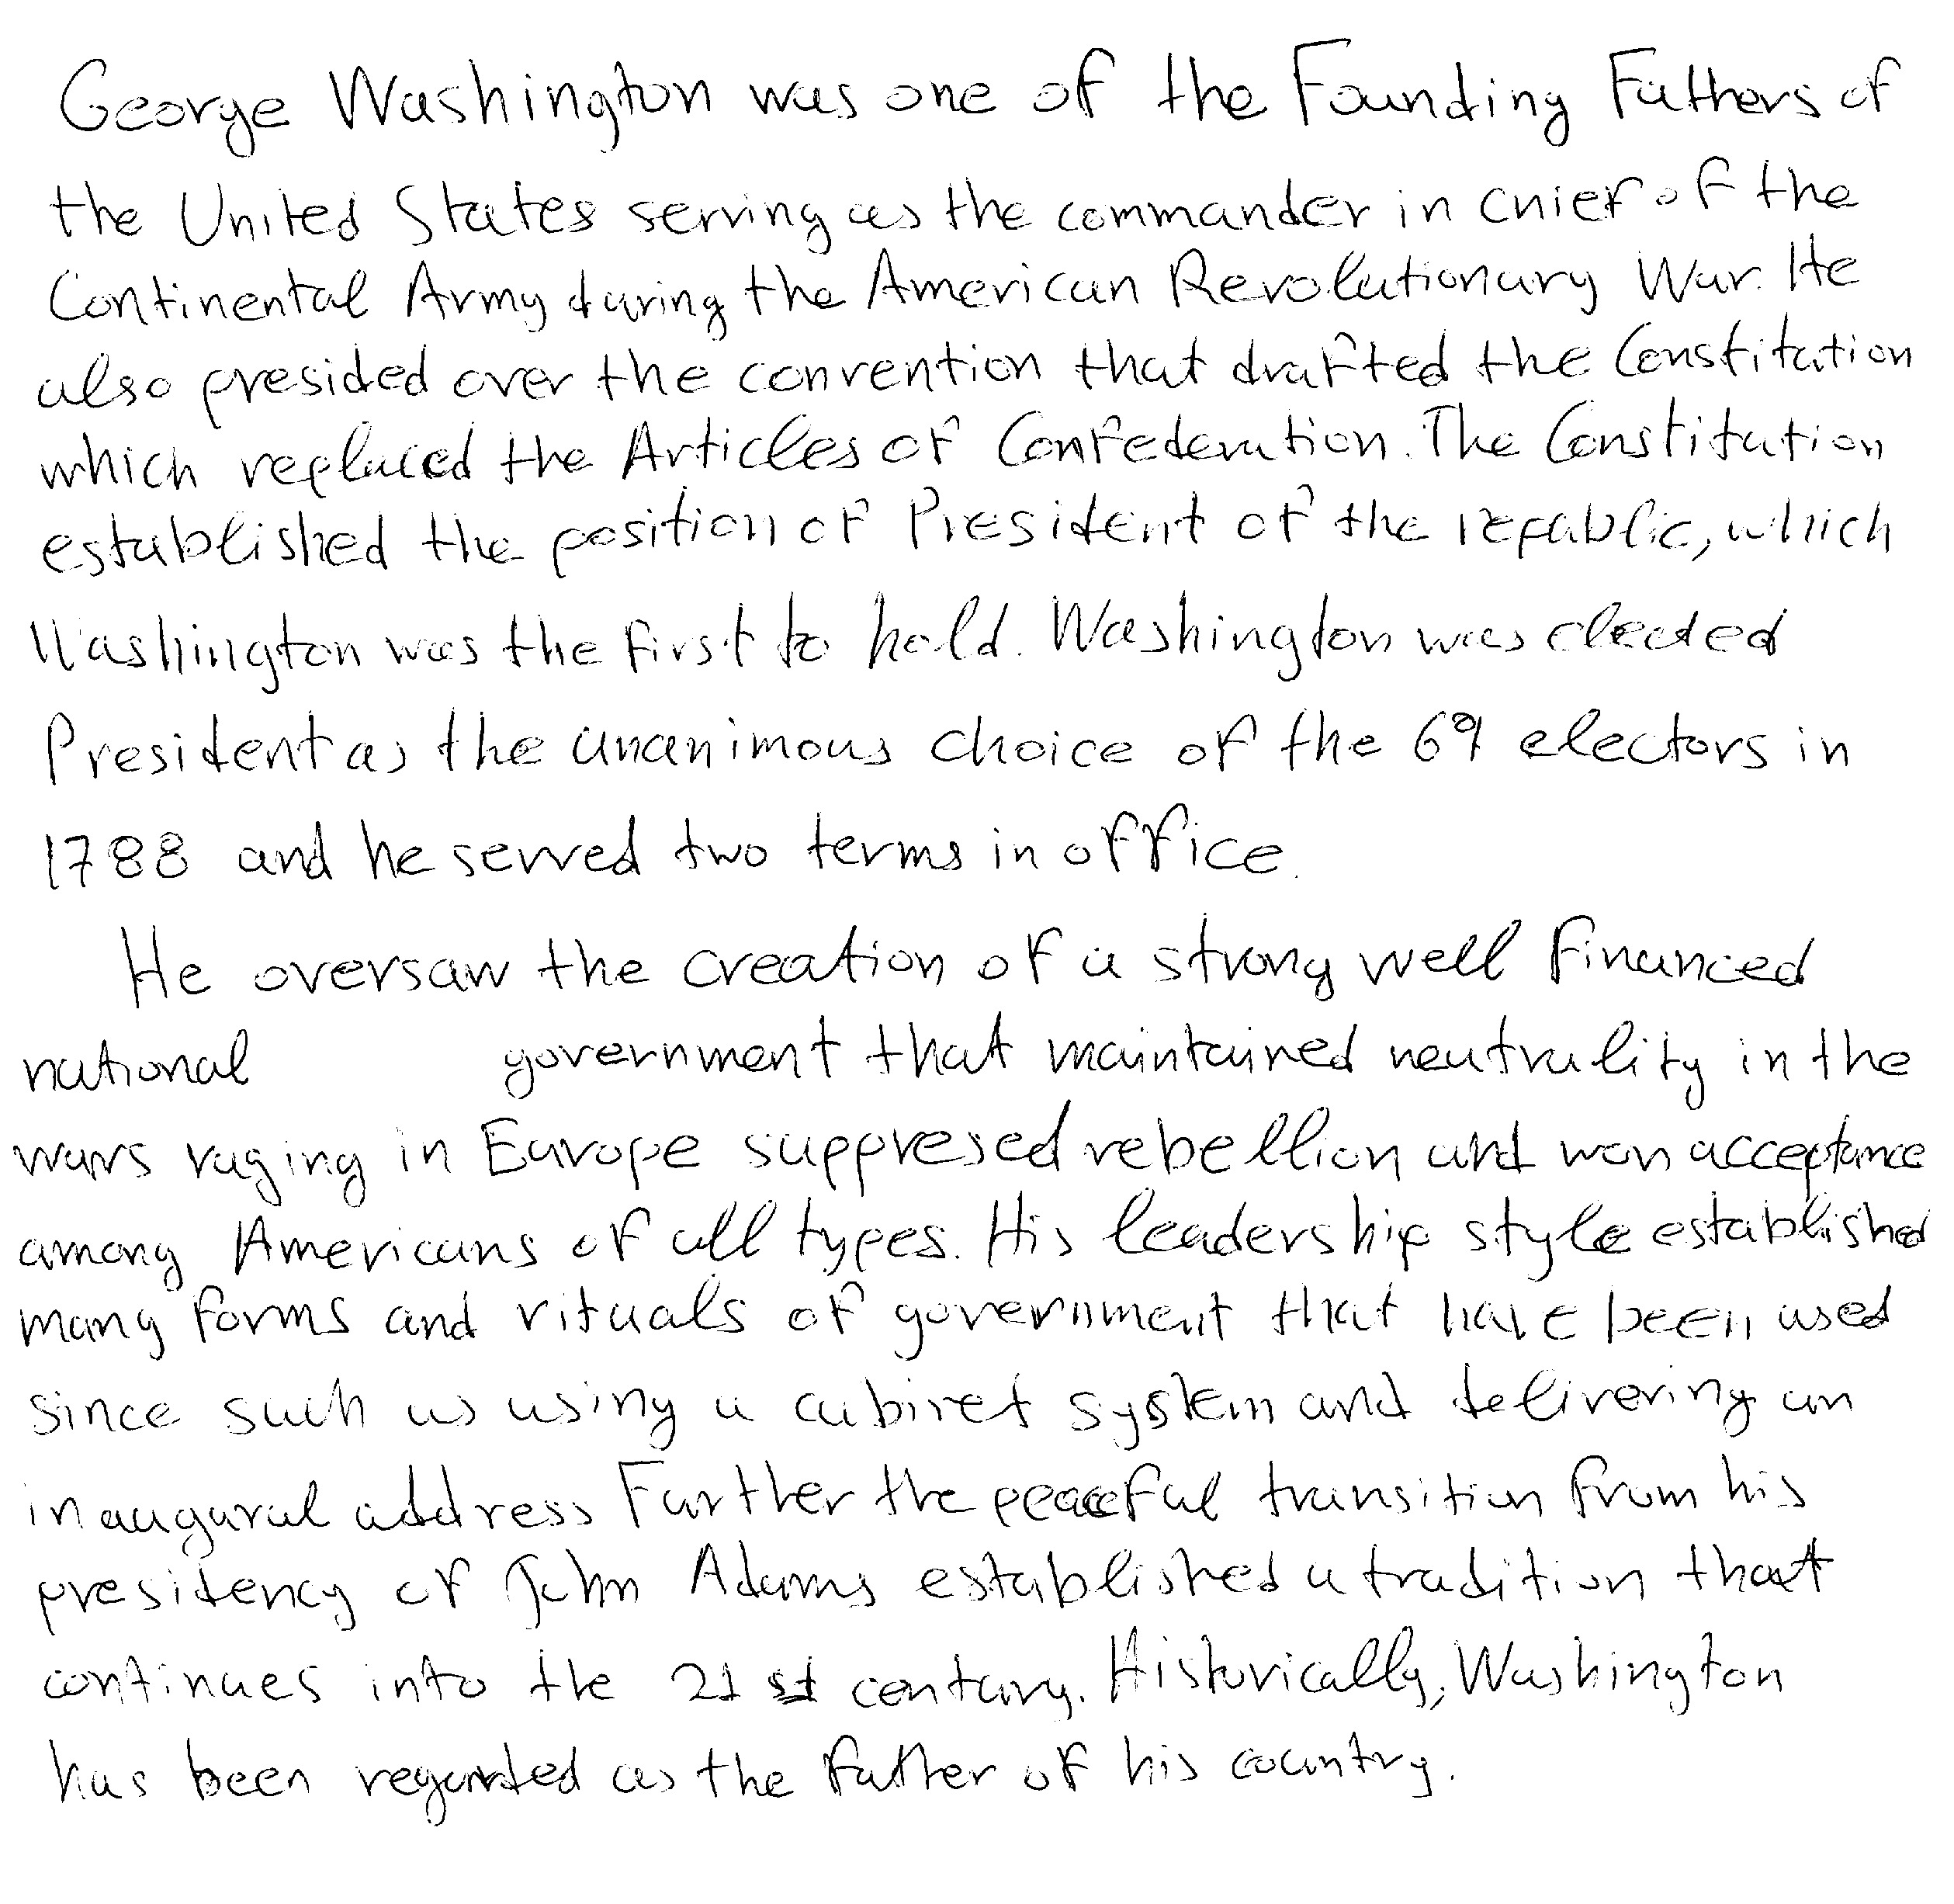 George Washington was one of the Founding Fathers of
the United States serving as the commander in chief of the
Continental Army during the American Revolutionary War. He
also presided over the convention that drafted the Constitution
which replaced the Articles of Confederation. The Constitution
established the position of President of the republic, which
Washington was the first to hold. Washington was elected
President as the unanimous choice of the 69 electors in
1788 and he served two terms in office.
He oversaw the creation of a strong well financed
national government that maintained neutrality in the
wars raging in Europe suppresed rebellion and won acceptance
among Americans of all types. His leadership style established
many forms and rituals of government that have been used
since such as using a cabinet system and delivering an
inaugural address Further the peaceful transition from his
presidency of John Adams established a tradition that
continues into the 21 st century. Historically, Washington
has been regarded as the father of his country.